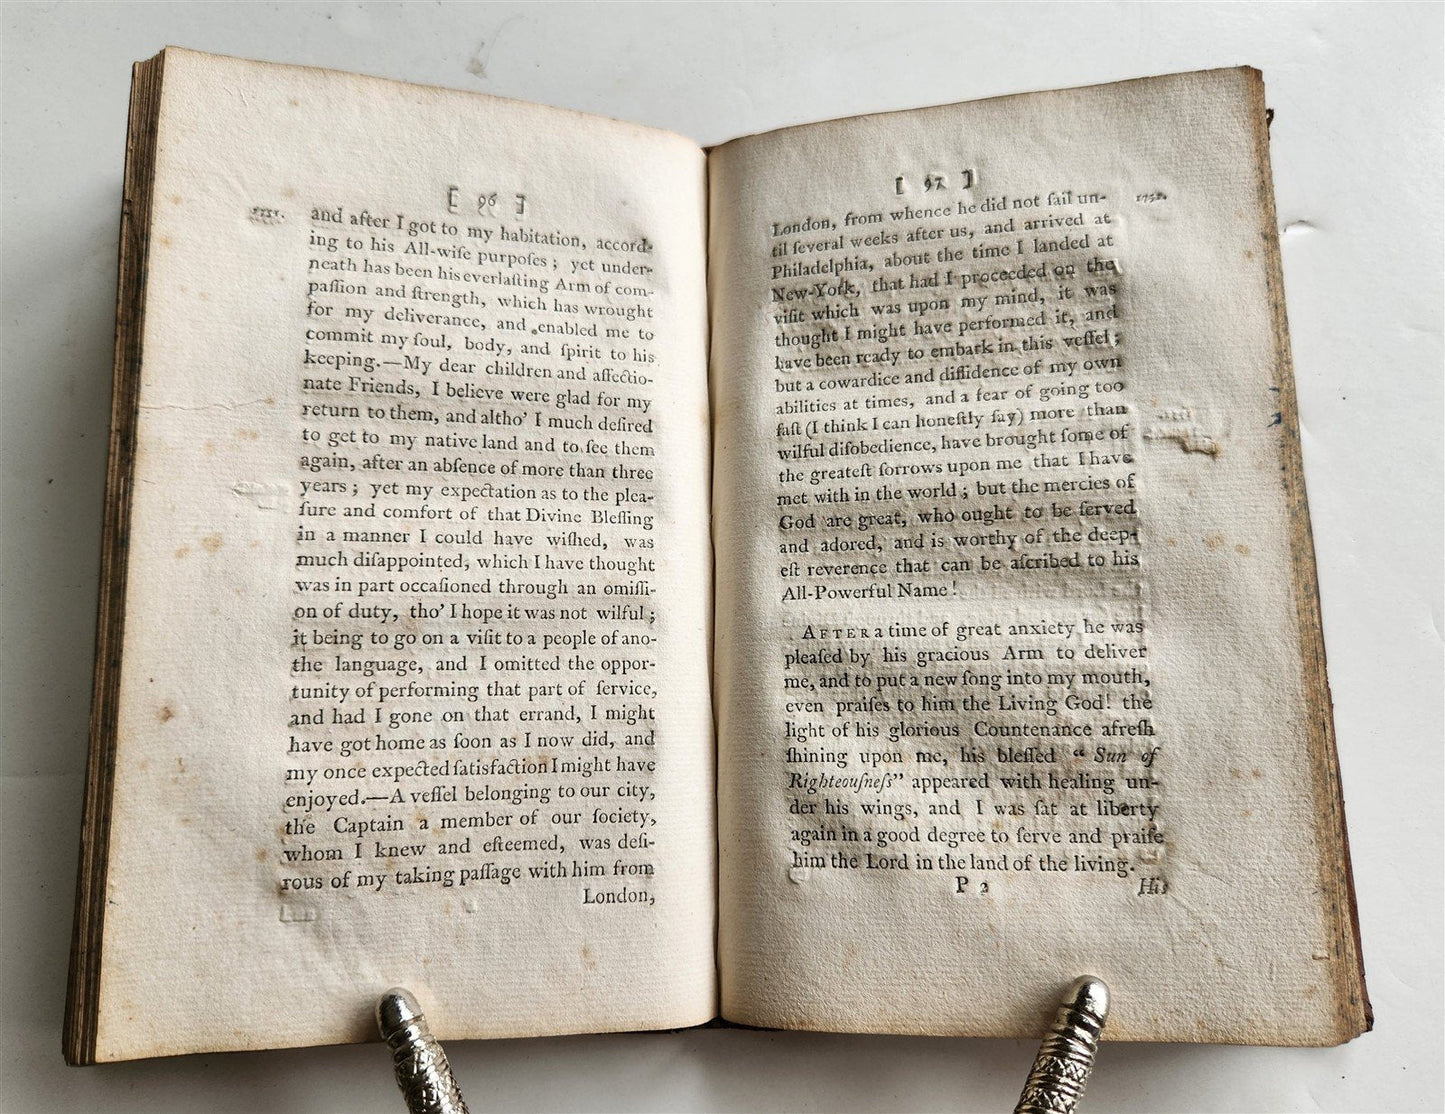 [ 96 ]
and after I got to my habitation, accord-
ing to his All-wiſe purpoſes ; yet under-
neath has been his everlaſting Arm of com-
paſſion and ſtrength, which has wrought
for my deliverance, and enabled me to
commit my ſoul, body, and ſpirit to his
keeping.—My dear children and affectio-
nate Friends, I believe were glad for my
return to them, and altho' I much deſired
to get to my native land and to ſee them
again, after an abſence of more than three
years ; yet my expectation as to the plea-
ſure and comfort of that Divine Bleſſing
in a manner I could have wiſhed, was
much diſappointed, which I have thought
was in part occaſioned through an omiſſi-
on of duty, tho' I hope it was not wilful ;
it being to go on a viſit to a people of ano-
the language, and I omitted the oppor-
tunity of performing that part of ſervice,
and had I gone on that errand, I might
have got home as ſoon as I now did, and
my once expected ſatisfaction I might have
enjoyed.—A veſſel belonging to our city,
the Captain a member of our ſociety,
whom I knew and eſteemed, was deſi-
rous of my taking paſſage with him from
London,
[ 97 ]
London, from whence he did not ſail un-
til ſeveral weeks after us, and arrived at
Philadelphia, about the time I landed at
New-York, that had I proceeded on the
viſit which was upon my mind, it was
thought I might have performed it, and
have been ready to embark in this veſſel ;
but a cowardice and diffidence of my own
abilities at times, and a fear of going too
faſt (I think I can honeſtly ſay) more than
wilful diſobedience, have brought ſome of
the greateſt ſorrows upon me that I have
met with in the world ; but the mercies of
God are great, who ought to be ſerved
and adored, and is worthy of the deep-
eſt reverence that can be aſcribed to his
All-Powerful Name !
AFTER a time of great anxiety he was
pleaſed by his gracious Arm to deliver
me, and to put a new ſong into my mouth,
even praiſes to him the Living God! the
light of his glorious Countenance afreſh
ſhining upon me, his bleſſed “ Sun of
Righteouſneſs” appeared with healing un-
der his wings, and I was ſat at liberty
again in a good degree to ſerve and praiſe
him the Lord in the land of the living.
P 2 His